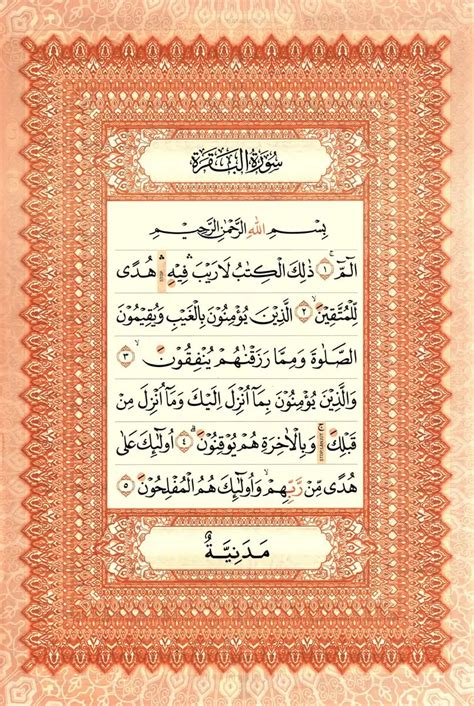 سُورَةُ الْبَقَرَةِ
بِسْمِ اللهِ الرَّحْمٰنِ الرَّحِيْمِ
الٓمّٓ ۚ ﴿١﴾ ذٰلِكَ الْكِتٰبُ لَا رَيْبَ ۛ فِيْهِ ۛ هُدًى
لِّلْمُتَّقِيْنَ ۙ ﴿٢﴾ الَّذِيْنَ يُؤْمِنُوْنَ بِالْغَيْبِ وَيُقِيْمُوْنَ
الصَّلٰوةَ وَمِمَّا رَزَقْنٰهُمْ يُنْفِقُوْنَ ۙ ﴿٣﴾
وَالَّذِيْنَ يُؤْمِنُوْنَ بِمَآ اُنْزِلَ اِلَيْكَ وَمَآ اُنْزِلَ مِنْ
قَبْلِكَ ۚ وَبِالْاٰخِرَةِ هُمْ يُوْقِنُوْنَ ۗ ﴿٤﴾ اُولٰٓئِكَ عَلٰى
هُدًى مِّنْ رَّبِّهِمْ ۙ وَاُولٰٓئِكَ هُمُ الْمُفْلِحُوْنَ ﴿٥﴾
مَدَنِيَّةٌ